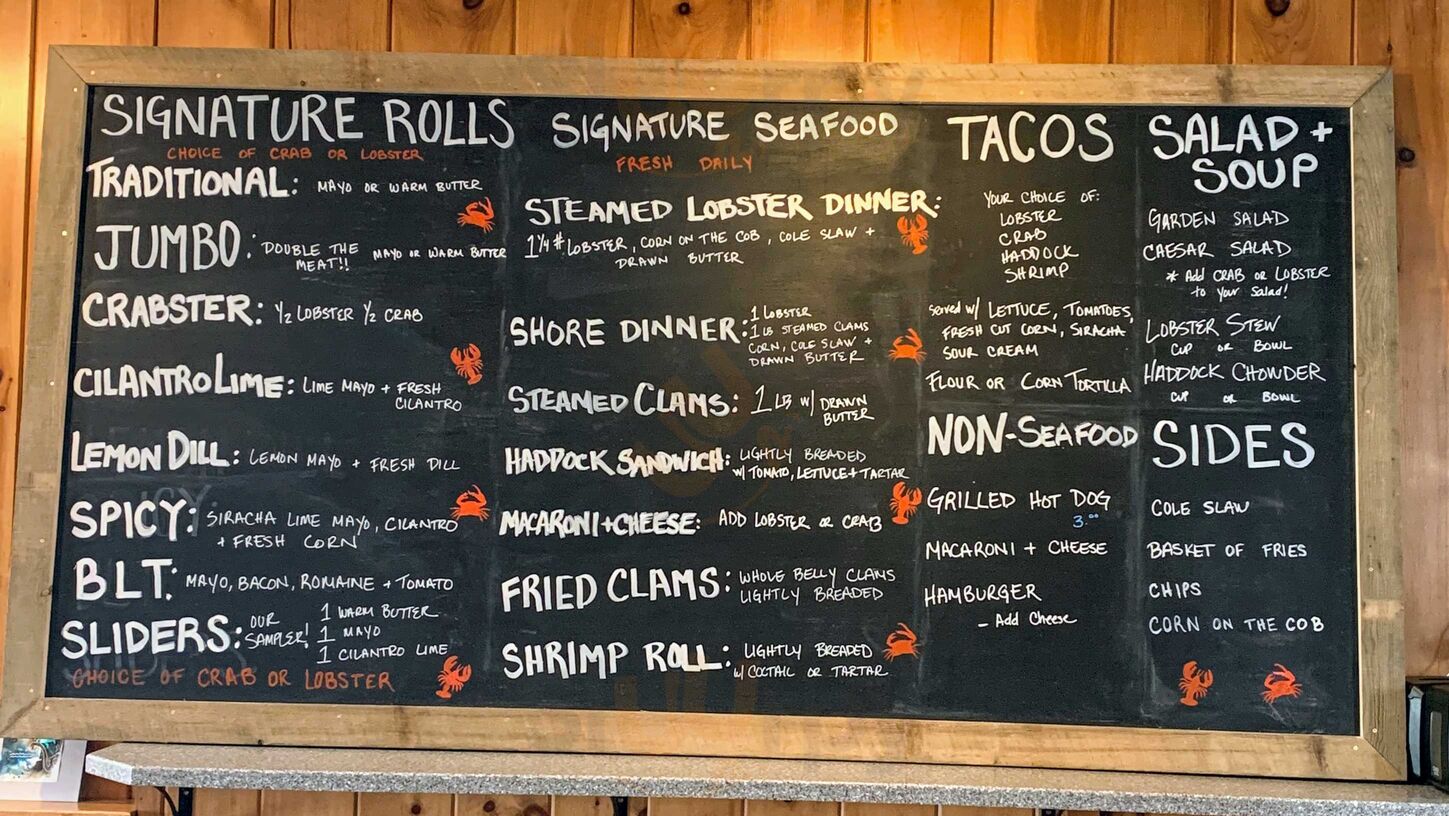 SIGNATURE ROLLS
CHOICE OF CRAB OR LOBSTER
TRADITIONAL: MAYO OR WARM BUTTER
JUMBO: DOUBLE THE MEAT!! MAYO OR WARM BUTTER
CRABSTER: 1/2 LOBSTER 1/2 CRAB
CILANTRO LIME: LIME MAYO + FRESH
CILANTRO
LEMON DILL: LEMON MAYO + FRESH DILL
SPICY: SIRACHA LIME MAYO, CILANTRO
+ FRESH CORN
BLT: MAYO, BACON, ROMAINE + TOMATO
SLIDERS: OUR SAMPLER! 1 WARM BUTTER
1 MAYO
1 CILANTRO LIME
CHOICE OF CRAB OR LOBSTER
SIGNATURE SEAFOOD
FRESH DAILY
STEAMED LOBSTER DINNER:
1 1/4 # LOBSTER, CORN ON THE COB, COLE SLAW +
DRAWN BUTTER
SHORE DINNER: 1 LOBSTER
1 LB STEAMED CLAMS
CORN, COLE SLAW +
DRAWN BUTTER
STEAMED CLAMS: 1 LB W/ DRAWN
BUTTER
HADDOCK SANDWICH: LIGHTLY BREADED
W/ TOMATO, LETTUCE + TARTAR
MACARONI + CHEESE: ADD LOBSTER OR CRAB
FRIED CLAMS: WHOLE BELLY CLAMS
LIGHTLY BREADED
SHRIMP ROLL: LIGHTLY BREADED
W/ COCTAIL OR TARTAR
TACOS
YOUR CHOICE OF:
LOBSTER
CRAB
HADDOCK
SHRIMP
Served w/ LETTUCE, TOMATOES,
FRESH CUT CORN, SIRACHA
SOUR CREAM
FLOUR OR CORN TORTILLA
NON-SEAFOOD
GRILLED HOT DOG
3.00
MACARONI + CHEESE
HAMBURGER
- Add Cheese
SALAD +
SOUP
GARDEN SALAD
CAESAR SALAD
* Add CRAB OR LOBSTER
to your Salad!
LOBSTER STEW
CUP OR BOWL
HADDOCK CHOWDER
CUP OR BOWL
SIDES
COLE SLAW
BASKET OF FRIES
CHIPS
CORN ON THE COB